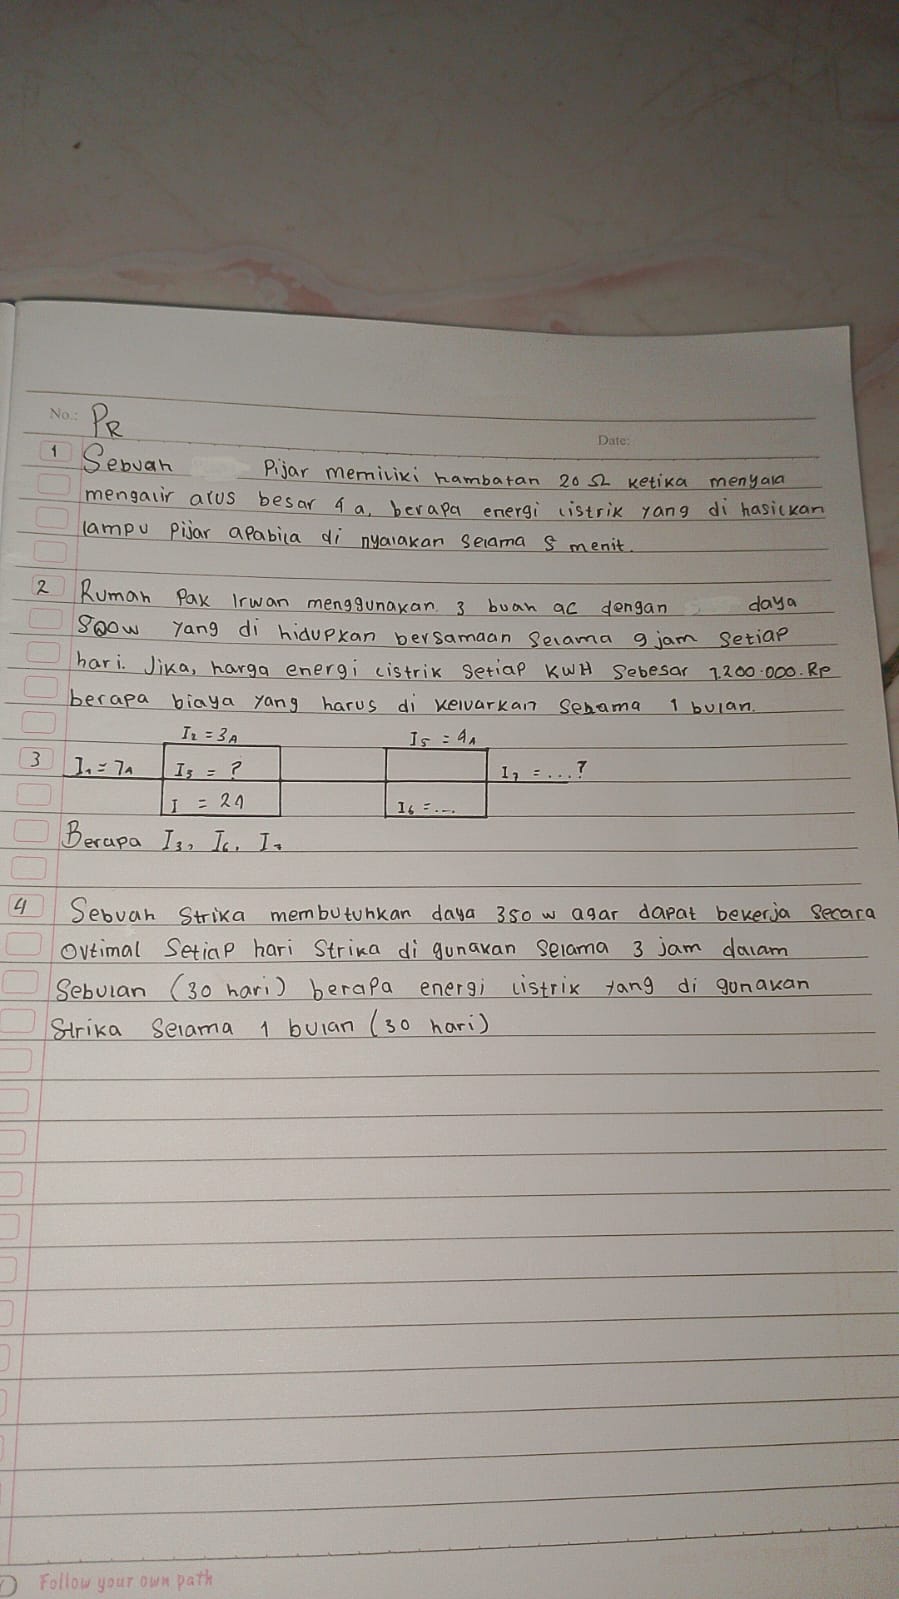 No.:
PR
Date:
1 Sebuah Pijar memiliki hambatan 20 Ω ketika menyala
mengalir arus besar 4 a, berapa energi listrik yang di hasilkan
lampu pijar apabila di nyalakan selama 5 menit.
2 Rumah Pak Irwan menggunakan 3 buah ac dengan daya
800w yang di hidupkan bersamaan selama 9 jam setiap
hari. Jika, harga energi listrik setiap KWH sebesar 1.200.000.RP
berapa biaya yang harus di keluarkan selama 1 bulan.
I₂ = 3A I₅ = 4A
3 I₁ = 7A I₃ = ? I₇ = ...?
I = 2A I₆ = ....
Berapa I₃, I₆, I₇
4 Sebuah Strika membutuhkan daya 350 w agar dapat bekerja Secara
Ovtimal Setiap hari Strika di gunakan selama 3 jam dalam
Sebulan (30 hari) berapa energi listrik yang di gunakan
Strika Selama 1 bulan (30 hari)
Follow your own path